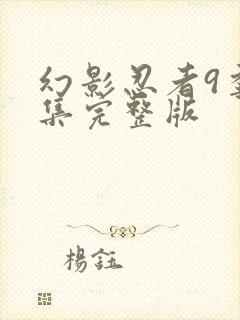 幻影忍者9季
集完整版
楊鈺